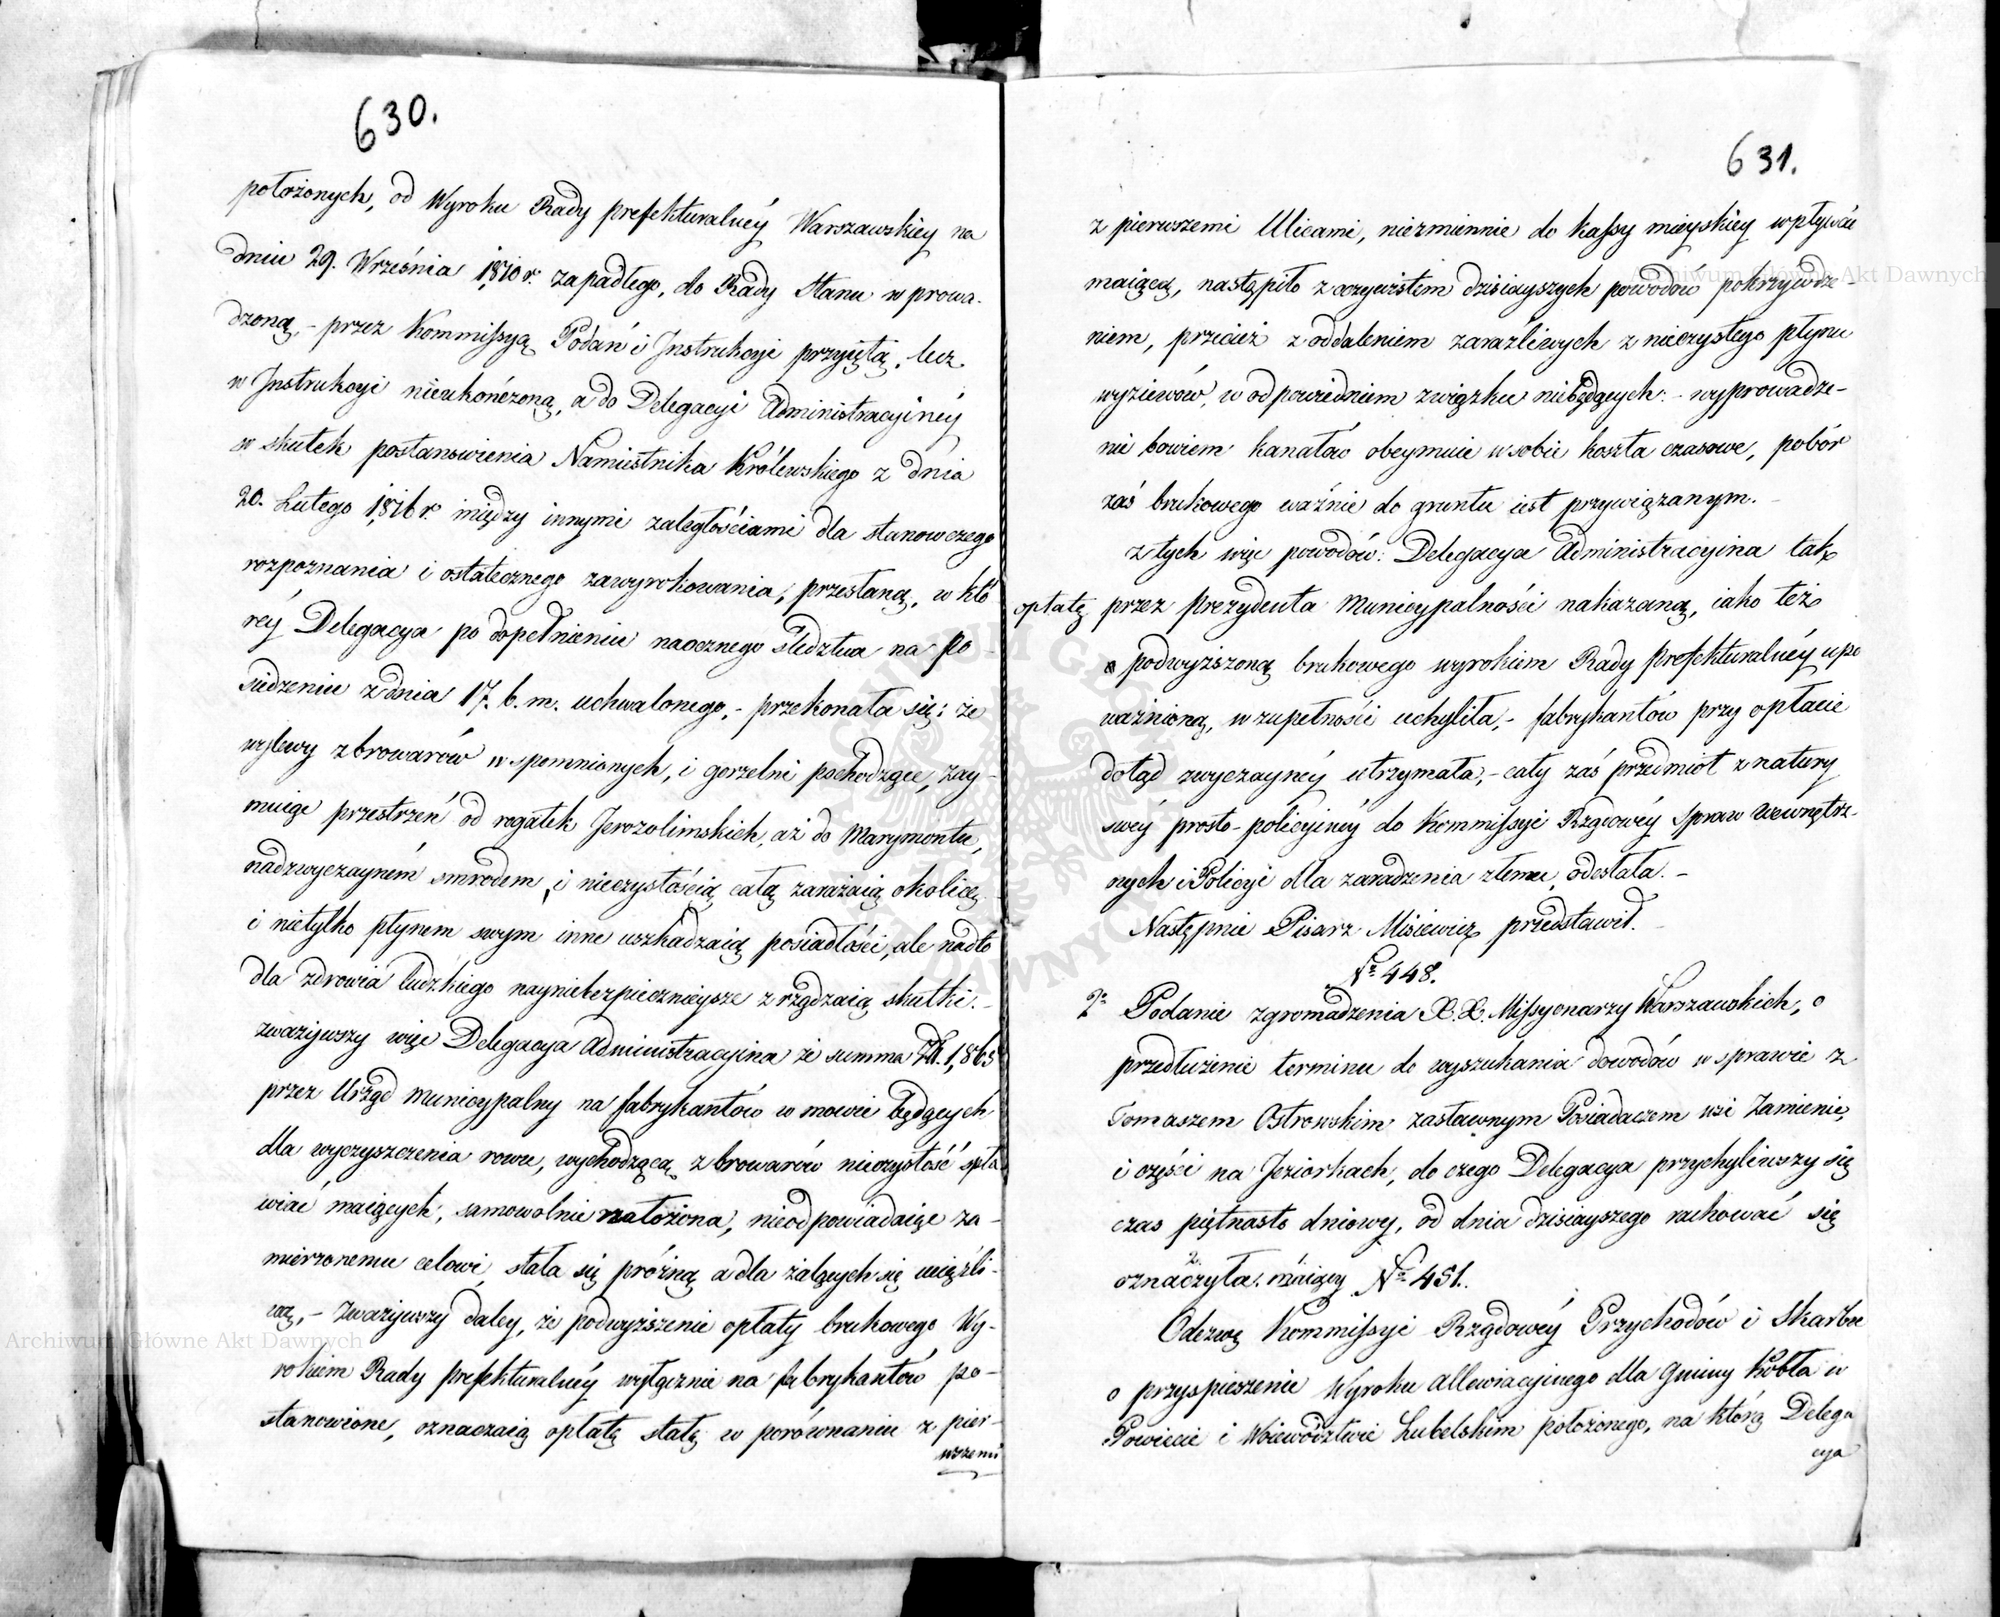 630.
położonych, od Wyroku Rady prefekturalnéy Warszawskiey na
dniu 29. Września 1810 r. zapadłego, do Rady Stanu wprowa-
dzoną, - przez Kommissyą Podań i Instrukcyi przyiętą, lecz
w Instrukcyi nieukończoną, a do Delegacyi Administracyinéy
w skutek postanowienia Namiestnika Królewskiego z dnia
20. Lutego 1816 r. między innymi zaległościami dla stanowczego
rozpoznania i ostatecznego zawyrokowania, przesłaną, w któ
réy Delegacya po dopełnieniu naocznego śledztwa na po-
siedzeniu z dnia 17. b. m. uchwalonego, - przekonała się: że
wylewy z browarów wspomnionych, i gorzelni pochodzące, zay-
muiąc przestrzeń od rogatek Jerozolimskich, aż do Marymontu,
nadzwyczayném smrodem, i nieczystością całą zarażaią okolicę
i nietylko płynem swym inne uszkadzaią posiadłości, ale nadto
dla zdrowia ludzkiego nayniebezpiecznieysze zrządzaią skutki. -
zważywszy więc Delegacya Administracyina że summa 1,865
przez Urząd Municypalny na fabrykantów w mowie będących
dla wyczyszczenia rowu, wychodzącą z browarów nieczystość spła
wiać maiących, samowolnie nałożona, nieodpowiadaiąc za-
mierzonemu celowi, stała się próżną a dla żalących się uciążli-
wą, - Zważywszy daley, że podwyższenie opłaty brukowego Wy-
rokiem Rady prefekturalnéy wyłącznie na fabrykantów po-
stanowione, oznaczaią opłatę stałą w porównaniu z pier-
wszemi
631.
z pierwszemi Ulicami, niezmiennie do kassy mieyskiey wpływać
maiącą, nastąpiło z oczywistem dzisiayszych powodów pokrzywdze-
niem, przecież z oddaleniem zaraźliwych z nieczystego płynu
wyziewów, w odpowiedniem związku niebędących: - wyprowadze-
nie bowiem kanałów obeymuie w sobie koszta czasowe, pobór
zaś brukowego ważnie do gruntu iest przywiązanym. -
z tych więc powodów: Delegacya Administracyina tak
opłatę przez Prezydenta Municypalności nakazaną, iako też
podwyższoną brukowego wyrokiem Rady Prefekturalnéy upo
ważnioną, w zupełności uchyliła, - fabrykantów przy opłacie
dotąd zwyczaynéy utrzymała, - cały zaś przedmiot z natury
swéy prosto-policyinéy do Kommissyi Rządowéy Spraw Wewnętrz-
nych i Policyi dla zaradzenia złemu, odesłała. -
Następnie Pisarz Misiewicz przedstawił.
Nr. 448.
Podanie zgromadzenia X. X. Missyonarzy Warszawskich, o
przedłużenie terminu do wyszukania dowodów w sprawie z
Tomaszem Ostrowskim zastawnym Posiadaczem wsi Zamienie,
i części na Jeziorkach, do czego Delegacya przychyliwszy się
czas piętnasto dniowy, od dnia dzisiayszego rachować się
2.
oznaczyła. Nr. 451.
Odezwę Kommissyi Rządowéy Przychodów i Skarbu
o przyspieszenie Wyroku allewiacyinego dla Gminy Kobła w
Powiecie i Woiewództwie Lubelskim położonego, na którą Delega
cya
Archiwum Główne Akt Dawnych
Archiwum Główne Akt Dawnych